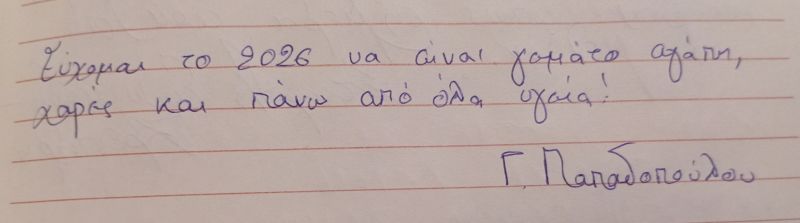 Εύχομαι το 2026 να είναι γεμάτο αγάπη,
χαρές και πάνω από όλα υγεία!
Γ. Παπαδοπούλου